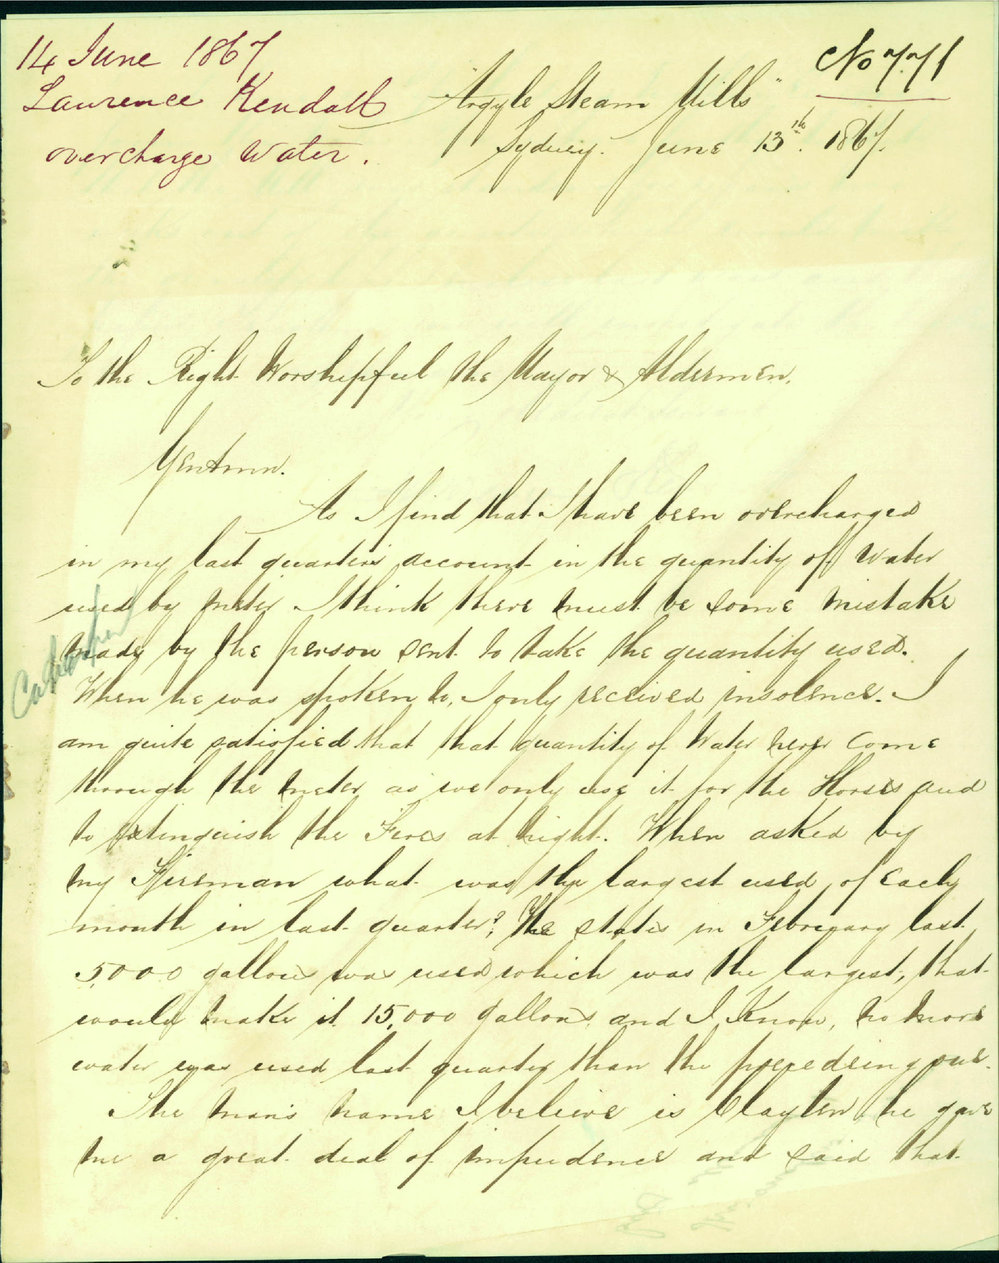 14 June 1867
Laurence Kendall
overcharge Water.
No 771
"Argyle Steam Mills"
Sydney. June 13th. 1867.
To the Right Worshipful the Mayor & Aldermen.
Gentmn.
As I find that I have been overcharged
in my last quarters account in the quantity of Water
used by meter I think there must be some mistake
made by the person sent to take the quantity used.
When he was spoken to, I only received insolence. I
am quite satisfied that that quantity of Water never come
through the meter as we only use it for the Horses and
to extinguish the Fires at night. When asked by
my Fireman what was the largest used of each
month in last quarter? He states in February last
5,000 gallons was used which was the largest, that
would make it 15,000 gallons and I Know, no more
water was used last quarter than the preceding one.
The man's name I believe is Clayten he gave
me a great deal of impudence and said that